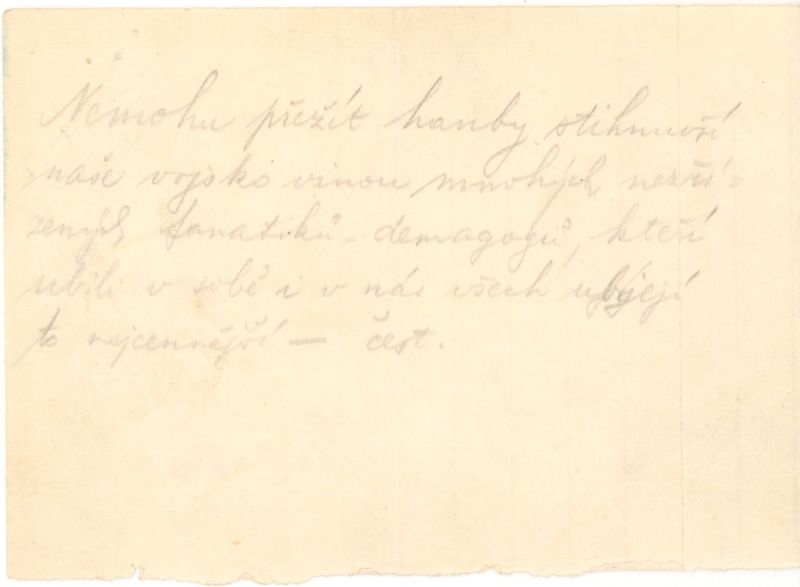 Nemohu přežít hanby stihnuvší
naše vojsko vinou mnohých nezří-
zených fanatiků-demagogů, kteří
ubili v sobě i v nás všech ubíjejí
to nejcennější — čest.